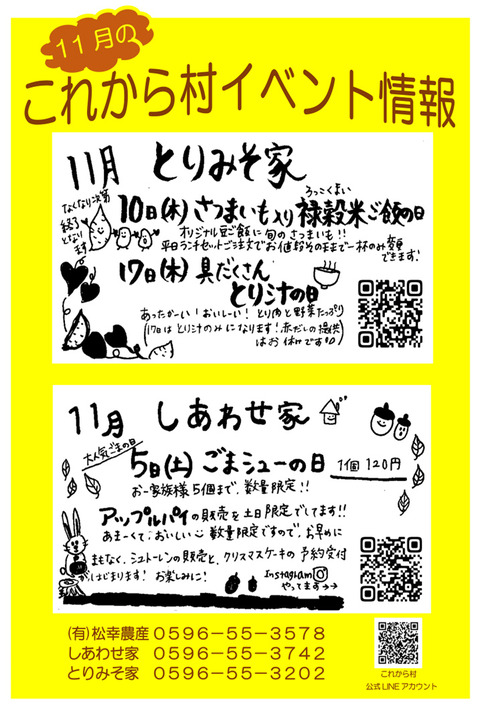 11月の
これから村イベント情報
11月 とりみそ家
なくなり次第
終了
となり
ます
ろっこくまい
10日(木) さつまいも入り 禄穀米ご飯の日
オリジナル豆ご飯に旬のさつまいも!!
平日ランチセットご注文でお値段そのままで一杯のみ変更
できます!
17日(木) 具だくさん
とり汁の日
あったかーい!おいしい!とり肉と野菜たっぷり
(17日はとり汁のみになります!赤だしの提供
はお休みです)
11月 しあわせ家
大人気ごまの日
5日(土) ごまシューの日 1個 120円
お一家族様5個まで、数量限定!!
アップルパイの販売を土日限定でしてます!!
あまーくておいしい 数量限定ですので、お早めに
まもなく、シュトーレンの販売と、クリスマスケーキの予約受付
がはじまります! お楽しみに!
Instagram
やってます→→
(有)松幸農産 0596-55-3578
しあわせ家 0596-55-3742
とりみそ家 0596-55-3202
これから村
公式LINEアカウント